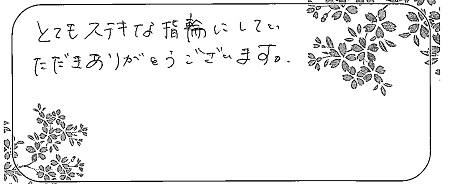 とてもステキな指輪にしてい
ただきありがとうございます。